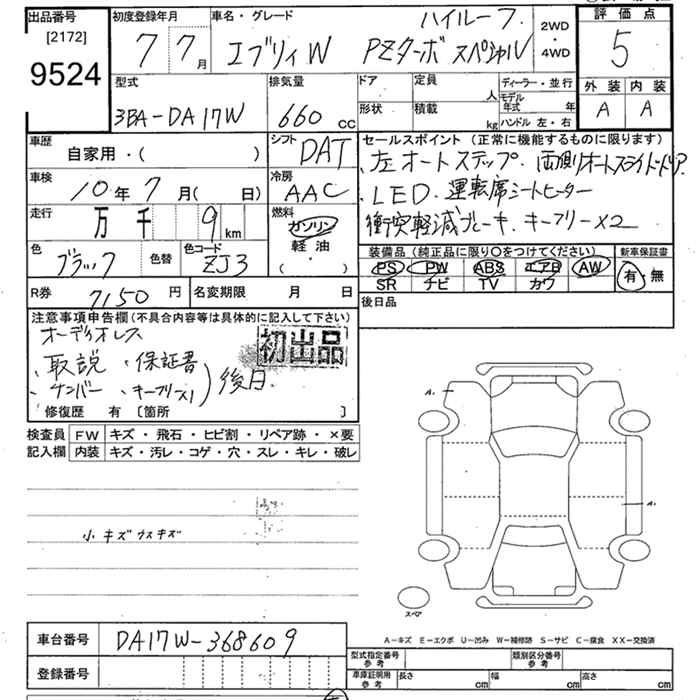 出品番号
[2172]
9524
初度登録年月
7 7月
車名・グレード
ハイルーフ
エブリィW PZターボスペシャル
2WD
・
4WD
評価点
5
外装 内装
A A
型式
3BA-DA17W
排気量
660 cc
ドア
形状
定員
人
積載
kg
ディーラー・並行
モデル年式 年
ハンドル 左・右
車歴
自家用・( )
シフト
DAT
車検
10年 7月( 日)
冷房
AAC
走行
万 千 9 km
燃料
ガソリン
軽油
・( )
色
ブラック
色替
色コード
ZJ3
セールスポイント(正常に機能するものに限ります)
、左オートステップ・両側オートスライドドア
、LED・運転席シートヒーター
衝突軽減ブレーキ・キーフリーX2
装備品(純正品に限り○をつけてください)
PS PW ABS エアB AW
SR ナビ TV カワ
新車保証書
有・無
R券
7150 円
名変期限 月 日
後日品
注意事項申告欄(不具合内容等は具体的に記入して下さい)
オーディオレス
初出品
、取説 、保証書
、ナンバー 、キーフリーX1)後日
修復歴 有 [箇所 ]
検査員記入欄
FW キズ・飛石・ヒビ割・リペア跡・×要
内装 キズ・汚レ・コゲ・穴・スレ・キレ・破レ
小キズ ウスキズ
A.
A.
スペア
A-キズ E-エクボ U-凹み W-補修跡 S-サビ C-腐食 XX-交換済
車台番号
DA17W-368609
登録番号
型式指定番号
参考
類別区分番号
参考
車庫証明用
参考
長さ cm 幅 cm 高さ cm